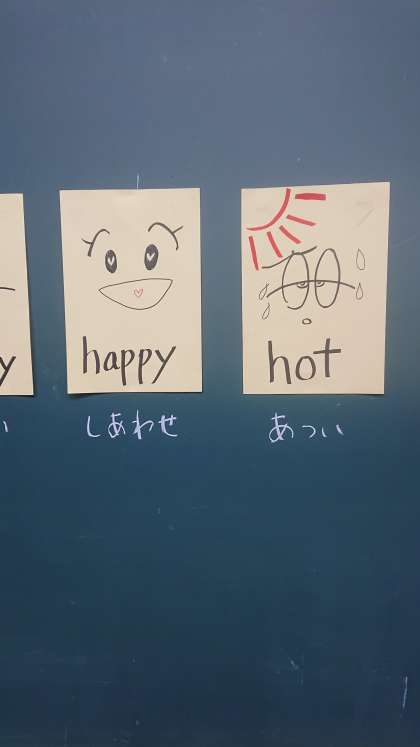 y
happy
hot
い
しあわせ
あつい